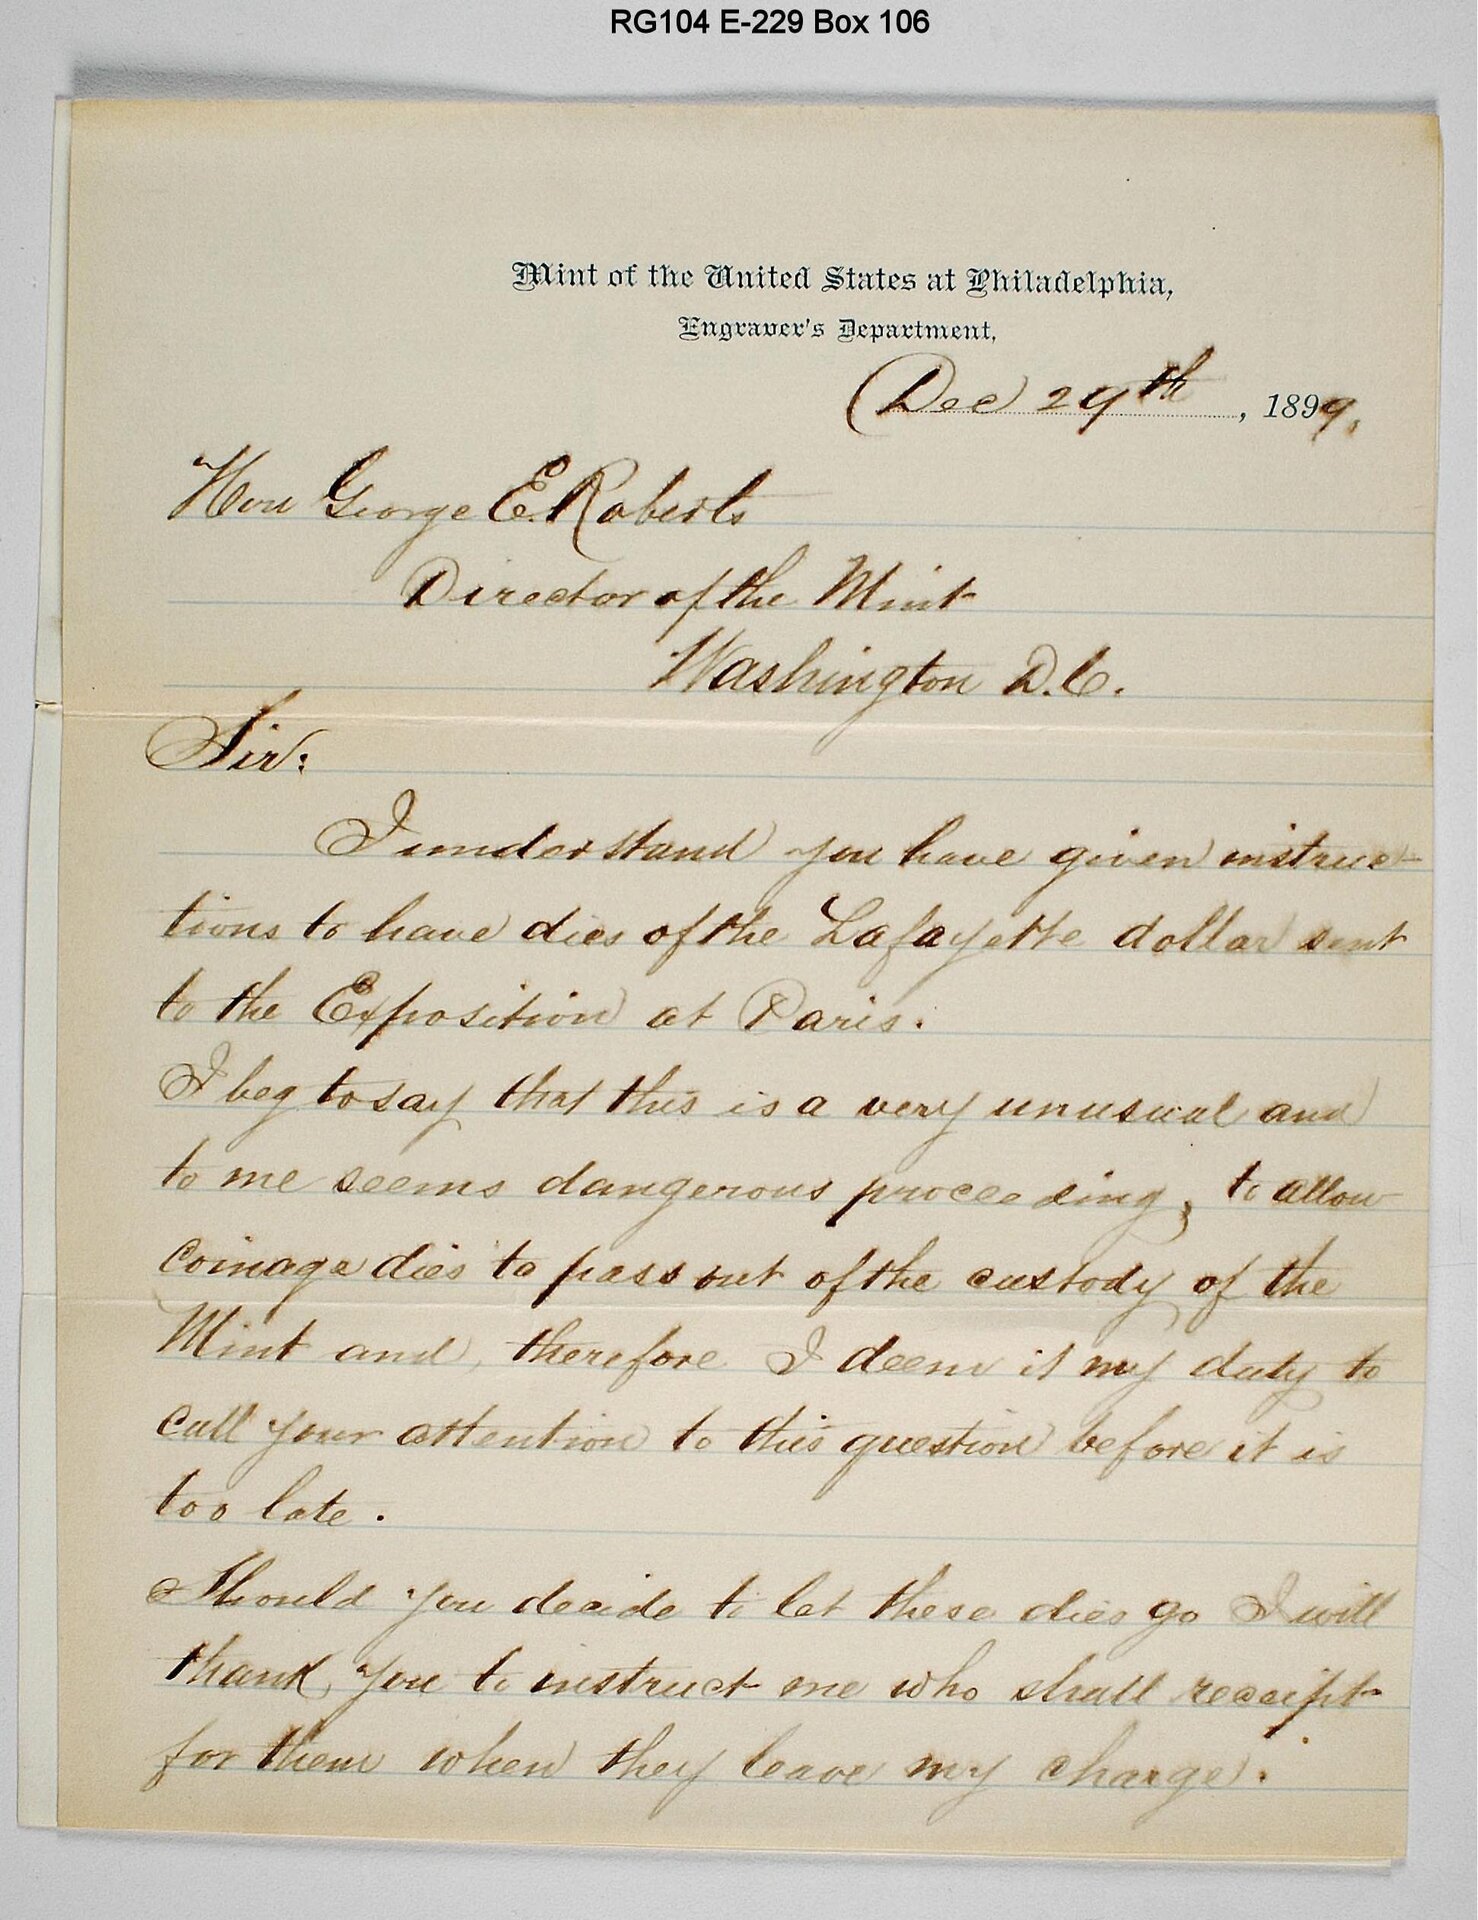 RG104 E-229 Box 106
Mint of the United States at Philadelphia,
Engraver's Department,
Dec 29th, 1899.
Hon George E. Roberts
Director of the Mint
Washington D.C.
Sir:
I understand you have given instruc-
tions to have dies of the Lafayette dollar sent
to the Exposition at Paris.
I beg to say that this is a very unusual and
to me seems dangerous proceeding, to allow
coinage dies to pass out of the custody of the
Mint and, therefore I deem it my duty to
call your attention to this question before it is
too late.
Should you decide to let these dies go I will
thank you to instruct me who shall receipt
for them when they leave my charge.